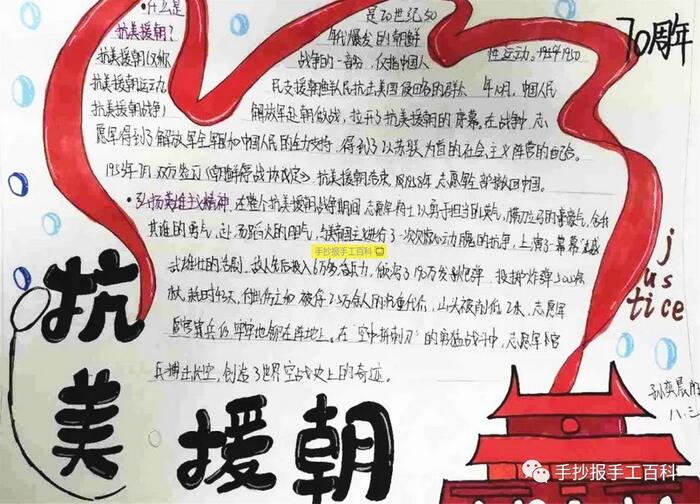 ·什么是
抗美援朝?
抗美援朝又称
抗美援朝运动
抗美援朝战争
是20世纪50
年代爆发的朝鲜
战争的一部分,仅指中国人
民支援朝鲜人民抗击美国侵略的群众
性运动。
年10月,中国人民
解放军赴朝做战,拉开了抗美援朝的序幕。在战争中,志
愿军得到了解放军全军和中国人民的全力支持,得到了以苏联为首的社会主义阵营的配合。
1953年7月,双方签订《朝鲜停战协定》抗美援朝结束,1958年志愿军全部撤回中国。
·弘扬英雄主义精神,在整个抗美援朝战争期间,志愿军将士以勇于担当的英气,横刀立马的豪气,舍我
其谁的勇气,
的勇气,与美帝国主义进行了一次次惊心动魄的抗争,上演了一幕幕
武雄壮的活剧,敌人先后投入6万多兵力,倾泻了190万发炮弹,投掷炸弹5000余
枚,耗时43天,付出伤亡和被俘2.5万余人的惨重代价,山头被削低2米,志愿军
官兵仍牢牢地守在阵地上。在"空中拼刺刀"的勇猛战斗中,志愿军
兵搏击长空,创造了世界空战史上的奇迹。
70周年
justice
抗
美
援朝
八.三
手抄报手工百科
手抄报手工百科